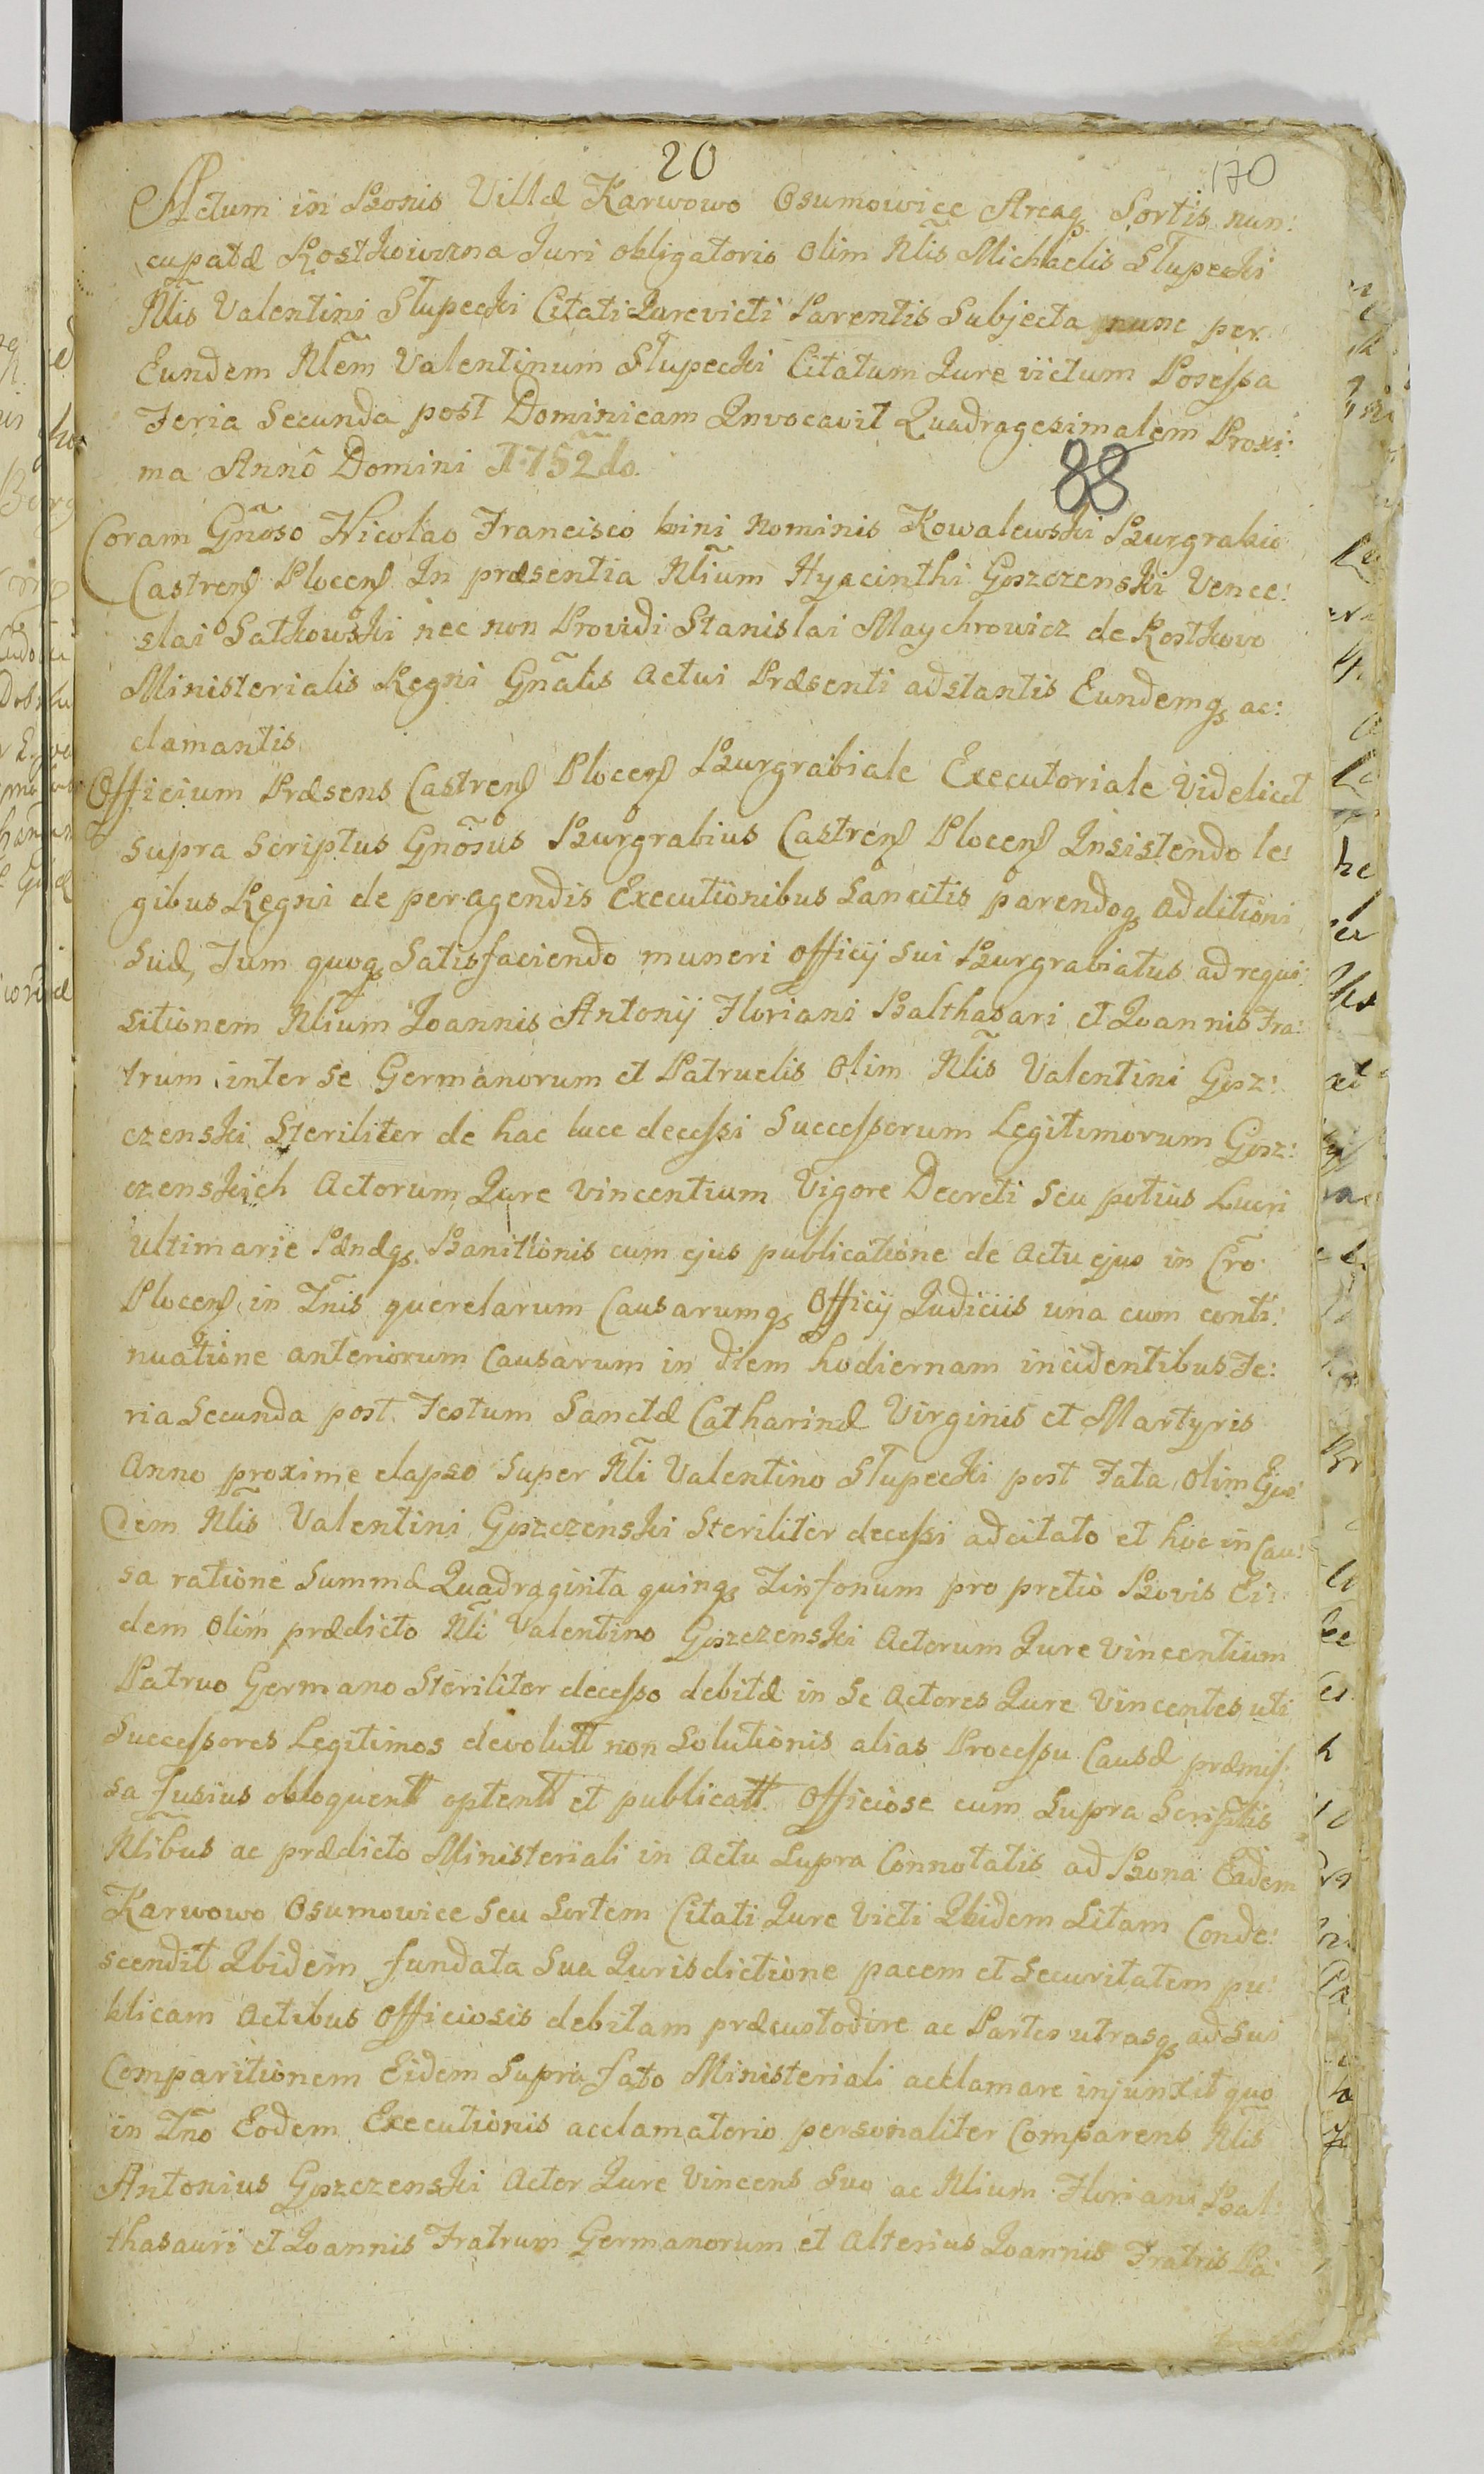 20
170
Actum in Bonis Villæ Karwowo Osumowice Areaq Sortis nun:
cupatæ Kostkowizna Juri obligatorio olim Nlis Michaelis Słupecki
Nlis Valentini Słupecki Citati Jurevicti Parentis Subjecta nunc per
Eundem Nlem Valentinum Słupecki Citatum Jure victum Posessa
Feria Secunda post Dominicam Invocavit Quadragesimalem Proxi:
ma Anno Domini 1752do.
88
Coram Gnoso Nicolao Francisco bini Nominis Kowalewski Burgrabio
Castren Plocen In præsentia Nlium Hyacinthi Goszczenski Vence:
slai Satkowski nec non Providi Stanislai Maychrowicz de Kostkowo
Ministerialis Regni Gnalis actui Præsenti adstantis Eundemq ac:
clamantis
Officium Præsens Castren Plocen Burgrabiale Executoriale Videlicet
supra scriptus Gnosus Burgrabius Castren Plocen Insistendo le:
gibus Regni de peragendis Executionibus Sancitis parendoq additioni
Suæ, Tum quoq Satisfaciendo muneri officij sui Burgrabiatus ad requi:
sitionem Nlium Joannis Antonij Floriani Balthasari et Joannis Fra:
trum inter se Germanorum et Patruelis olim Nlis Valentini Gosz:
czenski Steriliter de hac luce decessi Successorum Legitimorum Gosz:
czenskich Actorum Jure vincentium Vigore Decreti seu potius Lucri
ultimarie Pænæq Banitionis cum ejus publicatione de Actu ejus in Cro
Plocen in Tnis querelarum Causarumq officij Judiciis una cum conti:
nuatione anteriorum Causarum in diem hodiernam incidentibus Fe:
ria Secunda post Festum Sanctæ Catharinæ Virginis et Martyris
Anno proxime elapso super Nli Valentino Słupecki post Fata olim Ejus:
dem Nlis Valentini Goszczenski Steriliter decessi adcitato et hoc in Cau:
sa ratione Summæ Quadraginta quinq Tinfonum pro pretio Bovis Ei:
dem olim prædicto Nli Valentino Goszczenski Actorum Jure vincentium
Patruo Germano Steriliter decesso debitæ in se Actores Jure Vincentes uti
Successores Legitimos devolutt non Solutionis alias Processu Causæ præmis:
sa fusius obloquentt optentt et publicatt. Officiose cum Supra Scriptis
Nlibus ac prædicto Ministeriali in Actu Supra Connotatis ad Bona Eadem
Karwowo Osumowice seu Sortem Citati Jure Victi Ibidem Sitam Conde:
scendit Ibidem fundata Sua Jurisdictione pacem et Securitatem pu:
blicam actibus officiosis debitam præcustodire ac Partes utrasq ad sui
Comparitionem Eidem Suprafato Ministeriali acclamare injunxit quo
in Tno Eodem Executionis acclamatorio personaliter Comparens Nlis
Antonius Goszczenski Actor Jure Vincens Suo ac Nlium Floriani Bal:
thasauri et Joannis Fratrum Germanorum et Alterius Joannis Fratris Pa: